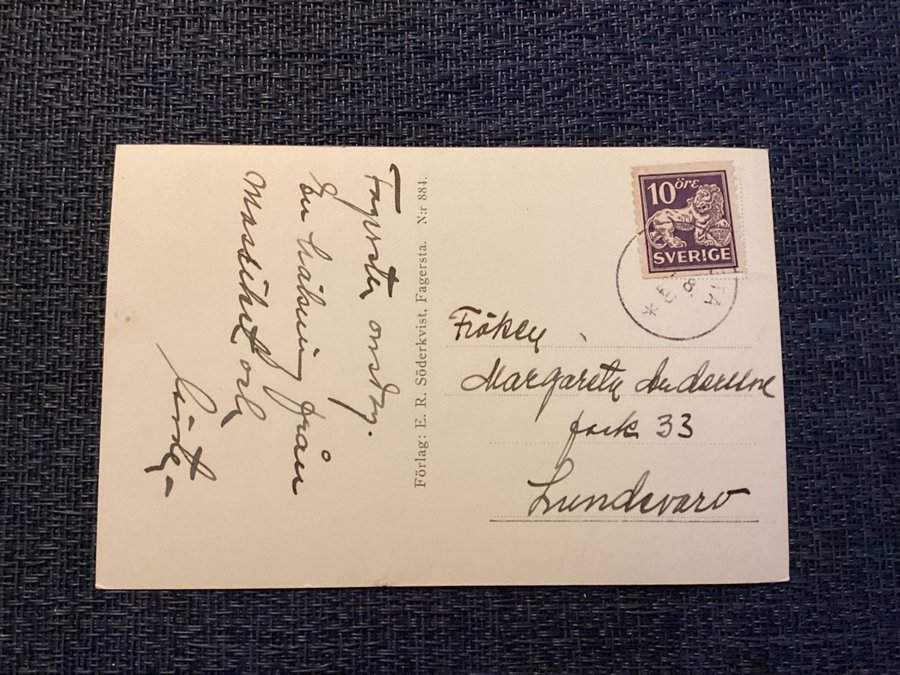 Fagersta onsdg.
En hälsning från
Massihit och
Förlag: E. R. Söderkvist, Fagersta. N:r 884.
10 ÖRE
SVERIGE
STA
Fröken
Margareta Andersson
fack 33
Lundsvarv